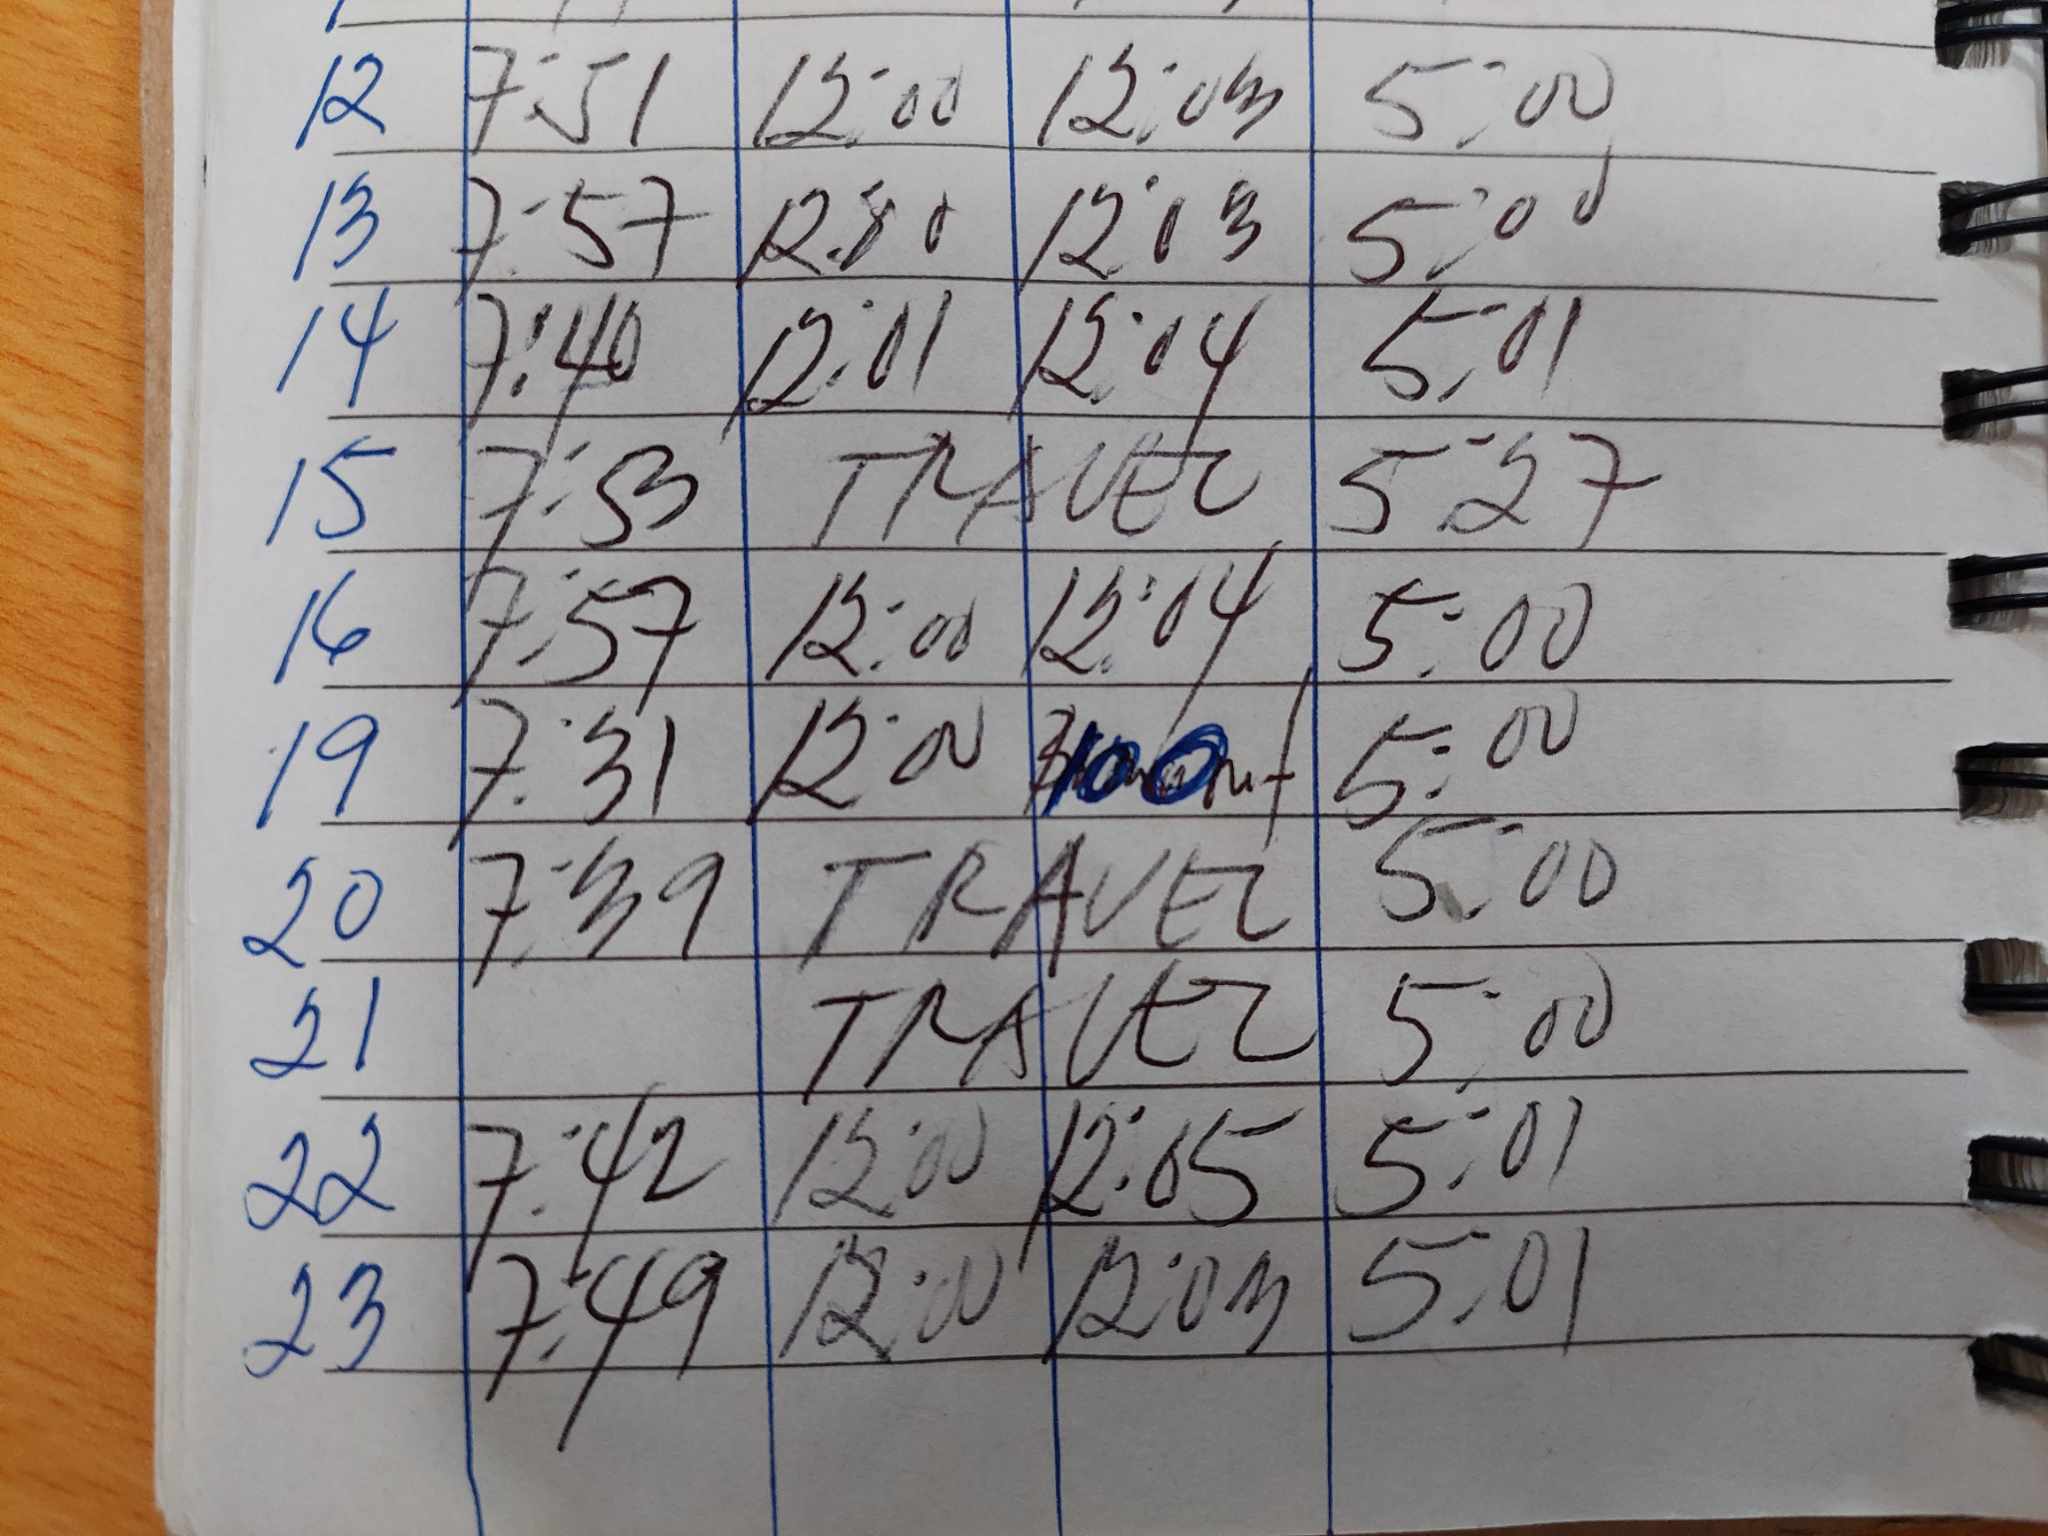 12 7:51 12:00 12:03 5:00
13 7:57 12:00 12:03 5:00
14 7:40 12:01 12:04 5:01
15 7:53 TRAVEL 5:27
16 7:57 12:00 12:04 5:00
19 7:31 12:00 100 5:00
20 7:39 TRAVEL 5:00
21 TRAVEL 5:00
22 7:42 12:00 12:05 5:01
23 7:49 12:00 12:03 5:01